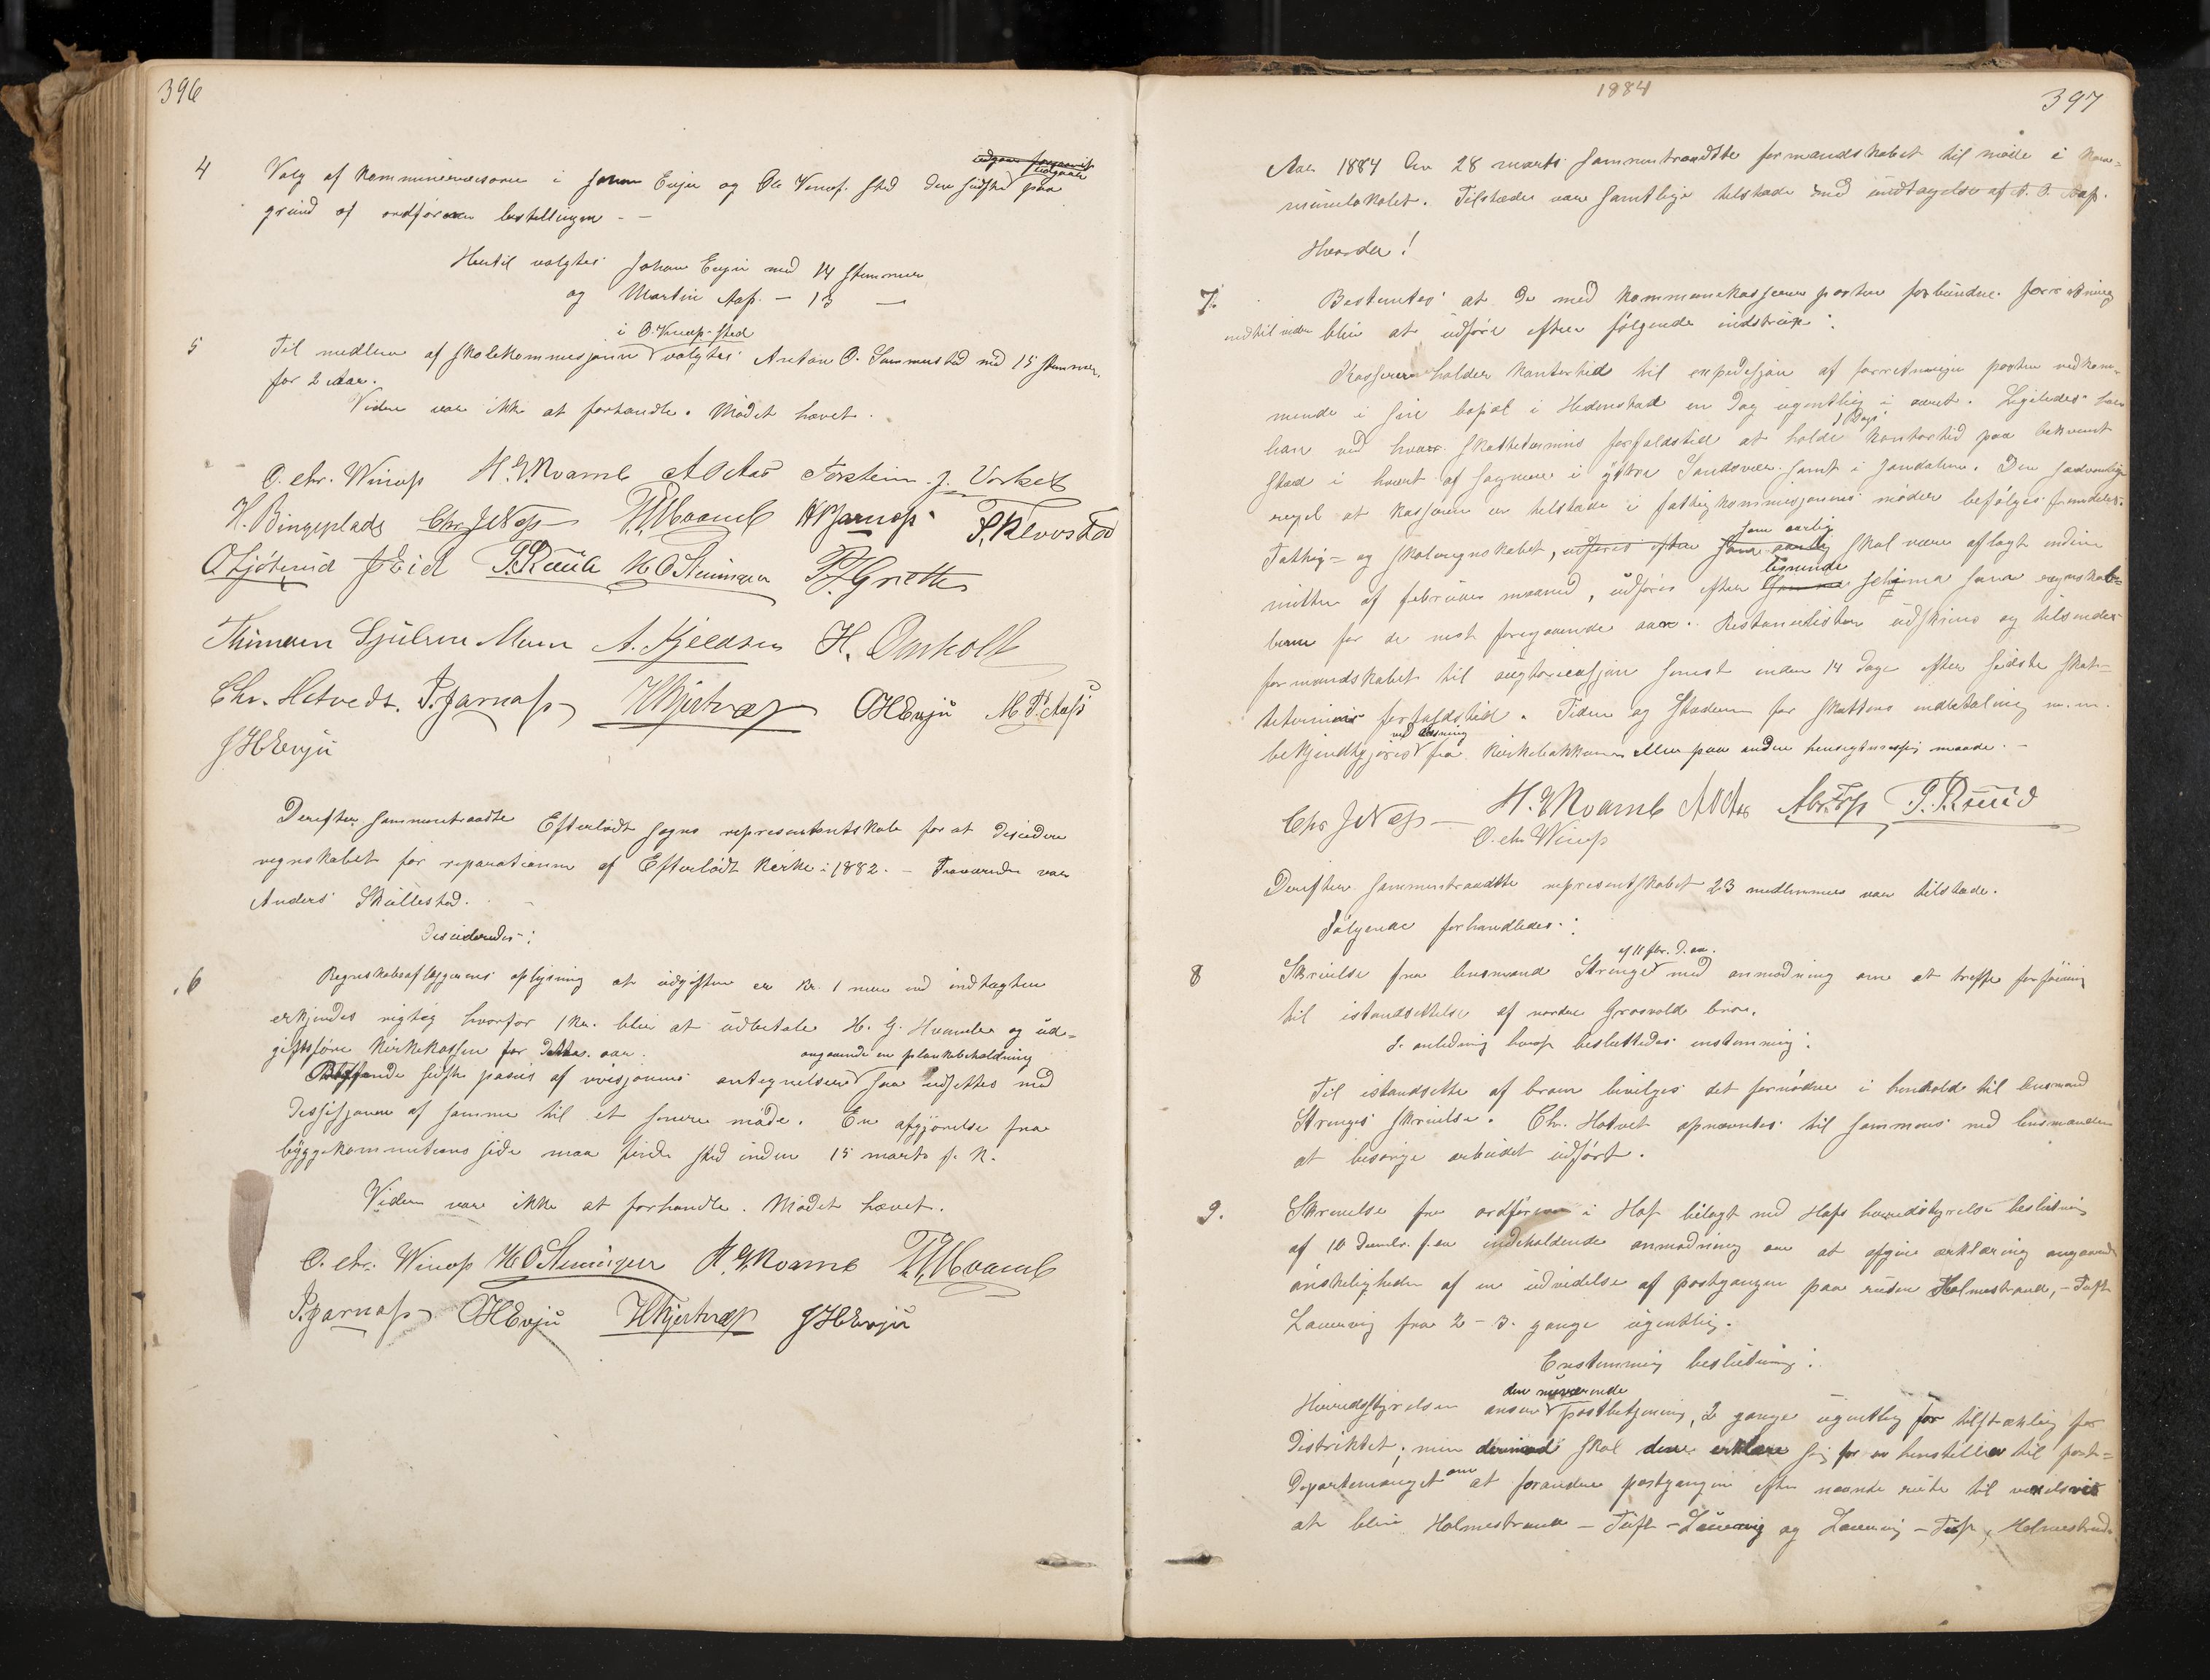 396
4 Valg af kommunerevisorer i Johan Evju og Ole Vinæs. sted den sidste udgaar paa
grund af ordfører bestillingen. –
Hertil valgtes Johan Evju med 14 stemmer
og Martin Aas. – 13 —
i O. Vinæs sted
5 Til medlem af skolekommisjonen valgtes Anton O. Sommerstad med 15 stemmer.
for 2 aar.
Videre var ikke at forhandle. Mødet hævet.
O. Chr. Winæs H. G. Kvamb A O Aas Torstein J. Vorket
H. Bingeplads Chr J Næs T. T. Moane P. Jarnæss P. Klovstad
O Ljøterud J Eid P. Ruud K O Steninger P. J. Grette
Thimann Sjulsen Moen A. Kjeldsen H. Omholt
Chr. Hotvedt. P. Jarnæss H Hjertnæs O H Evju M P Aass
J H Evju
Derefter sammentraadte Efterlødt sogns representantskab for at desidere
regnskabet for reparationen af Efterlødt kirke i 1882. – Fraværende var
Anders Skullestad.
Desideredes:
6 Regnskabsaflæggerens oplysning at udgiften er kr. 1 mere end indtægten
erkjendes rigtig hvorfor 1 kr. blir at udbetale H. G. Kvamb og ud=
giftsføre kirkekassen for dette aar.
angaaende en plankebeholdning
sidste passus af revisjonens antegnelser saa udsettes med
dessisjonen af samme til et senere møde. En afgjørelse fra
byggekommiteens side maa finde sted inden 15 marts f. k.
Videre var ikke at forhandle. Mødet hævet.
O. Chr. Winæs K O Steninger H. G. Kvamb T. T. Moane
P. Jarnæss O H Evju H Hjertnæs J H Evju
1884
397
Aar 1884 den 28 marts sammentraadte formandskabet til møde i kom=
munelokalet. Tilstæde var samtlige tilstede med undtagelse af A. O. Aas.
Hvorder!
7. Bestemtes at de med kommunekassererposten forbundne forretning
indtil videre blir at udføre efter følgende indstruks:
Kassereren holder kontortid til expedisjon af forretninger posten vedkom=
mende i sin bopæl i Hedenstad en dag ugentlig i aaret. Ligeledes har
1 Dags
han ved hvær skattetermins forfaldstid at holde kontortid paa bekvemt
sted i hvert af sognene i ytre Sandsvær samt i Jondalen. Den sædvanlige
regel at kassereren er tilstede i fattigkommisjonens møder befølges fremdeles.
som aarlig
Fattig- og skoleregnskabet, udføres efter skal være aflagt inden
lignende
midten af februar maaned, udføres efter schema som regnskab
berne for de nest foregaaende aar. Restanselisten udskrives og tilsendes
formandskabet til augtorisasjon senest inden 14 dage efter sidste skat=
tetermins forfaldstid. Tiden og stederne for skattens indbetaling m. m.
ved læsning
bekjendtgjøres fra kirkebakken eller paa anden hensigtsmessig maade. –
Chr J Næs — H. G. Kvamb A O Aas P. Ruud
O. Chr Winæs
Derefter sammentraadte representskabet 23 medlemmer var tilstede.
Følgende forhandledes:
af 11 febr. d. aa.
8 Skrivelse fra lensmand Strenge med anmodning om at treffe forføining
til istandsettelse af nordre Grosvold bro.
I anledning heraf besluttedes enstemmig:
Til istandsette af broen bevilges det fornødne i henhold til lensmand
Strenges skrivelse. Chr. Hotvet opnævntes til sammens med lensmanden
at besørge arbeidet udført.
9. Skrivelse fra ordføreren i Hof bilagt med Hofs heredstyrelses beslutning
af 10 Decembr. f. aa indeholdende anmodning om at afgive erklæring angaaende
ønskeligheden af en udvidelse af postgangen paa ruten Holmestrand, – Tuft
Laurvig fra 2 – 3. gange ugentlig.
Enstemmig beslutning:
den nuværende
Heredsstyrelsen anser postbetjening, 2 gange ugentlig for tilstrækkelig for
distriktet; men derimod skal den erklære sig for en henstillen til post=
departemanget om at forandre postgangen efter nævnte rute til vexelvis
at blive Holmestrand – Tuft – Laurvig og Laurvig – Tuft, Holmestrand